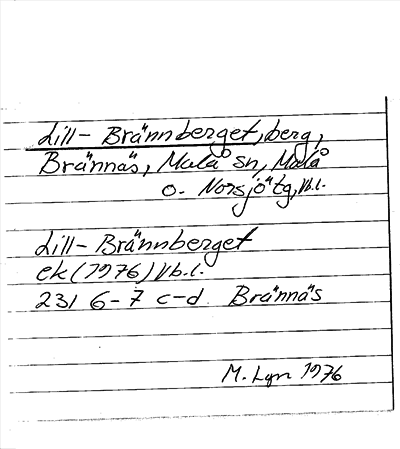 Lill-Brännberget, berg,
Brännäs, Malå sn, Malå
o. Norsjö tg, Vb.l.
Lill-Brännberget
ek (1976) Vb.l.
231 6-7 c-d Brännäs
M. 1976